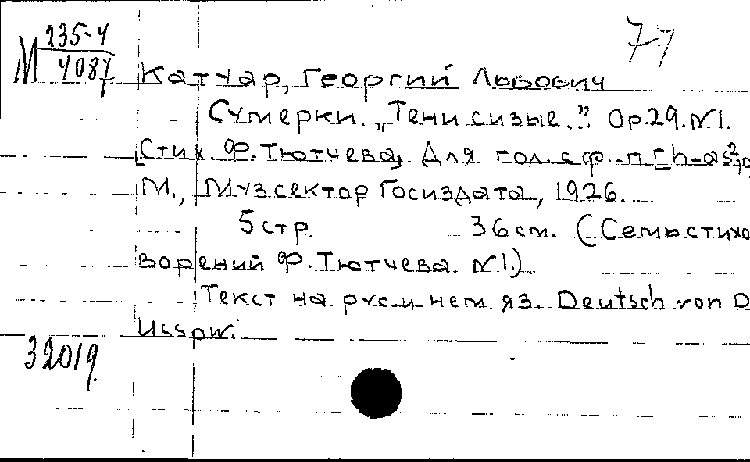 М 235-4
4087
77
Катуар, Георгий Львович
Сумерки. „Тени сизые.." Ор.29.№1.
[Стих. Ф. Тютчева, Для гол. с ф.-п. [h-as²;
М., Музсектор Госиздата, 1926.
5 стр. 36 см. (Семь стихо
ворений Ф. Тютчева. №1.)
Текст на рус. и нем. яз. Deutsch von D
32019